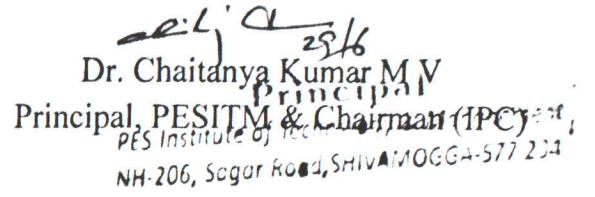 29/6
Dr. Chaitanya Kumar M V
Principal
Principal, PESITM & Chairman (IPC)
PES Institute of
NH-206, Sagar Road, SHIVAMOGGA-577 204